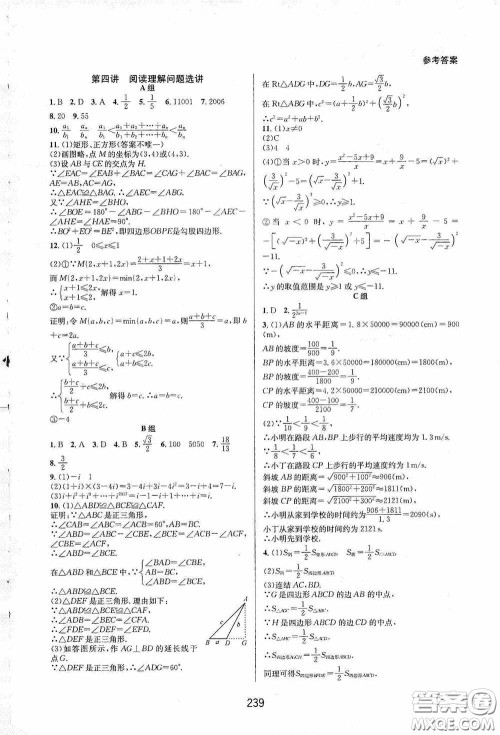 参考答案
第四讲 阅读理解问题选讲
A 组
1. B 2. D 3. A 4. 1/2 5. 1/5 6. 11001 7. 2006
8. 20 9. 55
10. a₁/b₁<(a₁+a₂+…+aₙ)/(b₁+b₂+…+bₙ)<aₙ/bₙ
11. (1)矩形,正方形(答案不唯一)
(2)画图略,点 M 的坐标为(3,4)或(4,3).
(3)设 AB 与 CE 的交点为 H.
∴∠EAC=∠EAB+∠BAC=∠CAG+∠BAC=∠BAG,
AE=AB, AC=AG.
∴△EAC≌△BAG. ∴∠AEC=∠ABG.
又∵∠AHE=∠BHO,
∴∠BOE=180°-∠ABG-∠BHO=180°-∠AEC-
∠AHE=∠HAE=90°.
∴BO²+EO²=BE²,即四边形OBPE是勾股四边形.
12. (1) 0≤x≤1
(2)①∵M{2,x+1,2x}=(2+x+1+2x)/3=x+1.
而 M{2,x+1,2x}=min{2,x+1,2x},
∴{x+1≤2, x+1≤2x. 解得 x=1.
②a=b=c.
证明:令 M{a,b,c}=min{a,b,c},则(a+b+c)/3=a, 即 b
+c=2a.
又∵{(a+b+c)/3≤b, (a+b+c)/3≤c. ∴{a+c≤2b, a+b≤2c.
∴{(b+c)/2+c≤2b, (b+c)/2+b≤2c. 解得 b=c. ∴a=b=c.
③-4
B 组
1. B 2. A 3. D 4. B 5. √3/2 6. 100 5050 7. 18/13
8. 3/2
9. (1)-i 1
(2)(1+i)×(3-4i)=3-4i+3i-4i²=3-i+4=7-i
(3)i+i²+i³+…+i²⁰¹⁷=i-1-i+1+…+i=i
10. (1)△ABC≌△DEF.
证明:∵△ABC 是正三角形.
∴∠CAB=∠ABC=∠BCA=60°,AB=BC.
∵∠ABD=∠ABC-∠CBE,∠BCE=∠ACB-∠ACF,
∠CBE=∠ACF,
∴∠ABD=∠BCE.
在△ABD 和△BCE 中,{∠BAD=∠CBE, AB=BC, ∠ABD=∠BCE,
∴△ABD≌△BCE.
(2)△DEF 是正三角形. 理由如下:
∵△ABD≌△BCE≌△CAF,
∴∠ADB=∠BEC=∠CFA.
∴∠FDE=∠DEF=∠EFD.
∴△DEF 是正三角形.
(3)如答图所示,作 AG⊥BD 的延长线于
点 G.
∵△DEF 是正三角形. ∴∠ADG=60°.
A
c
b
B
a
D
G
在 Rt△ADG 中,DG=1/2 b,AG=√3/2 b.
在 Rt△ABG 中,c²=(a+1/2 b)²+(√3/2 b)²
∴c²=a²+ab+b²
11. (1)x≠0
(2)C
(3)4 4
(4)①当 x>0 时,y=(x²-5x+9)/x=x+9/x-5=(√x)²+
(3/√x)²-5=(√x-3/√x)²+1
∵(√x-3/√x)²≥0,∴y≥1.
② 当 x<0 时,y=(x²-5x+9)/x=x+9/x-5=
-[(√-x)²+(3/√-x)²+5]=-(√-x-3/√-x)²-11.
∵-(√-x-3/√-x)²≤0, ∴y≤-11.
∴y 的取值范围是 y≥1 或 y≤-11.
C 组
3. (1)AB 的水平距离=1.8×50000=90000(cm)=900
(m)
AB 的坡度=100/900=1/9.
BP 的水平距离=3.6×50000=180000(cm)=1800(m)
BP 的坡度=(400-200)/1800=1/9.
CP 的水平距离=4.2×50000=210000(cm)=2100(m)
CP 的坡度=(400-100)/2100=1/7.
∴小明在路段 AB、BP 上步行的平均速度约为 1.3 m/s.
∴小丁在路段 CP 上步行的平均速度约为 1 m/s.
斜坡 AB 的距离=√(900²+100²)≈906(m)
斜坡 BP 的距离=√(1800²+200²)≈1811(m)
斜坡 CP 的距离=√(2100²+300²)≈2121(m)
∴小明从家到学校的时间约为(906+1811)/1.3=2090(s)
小丁从家到学校的时间约为 2121 s.
∴小明先到学校.
(3)连结AC,BD.
∵G 是四边形 ABCD 的边 AB 的中点,
∵H 是四边形 ABCD 的边 CD 的中点,
239
答案圈
MXQE.COM